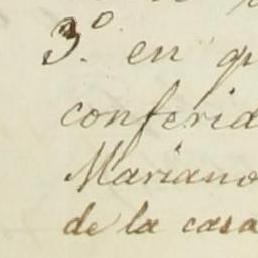 3.º en qu
conferid
Mariano
de la casa